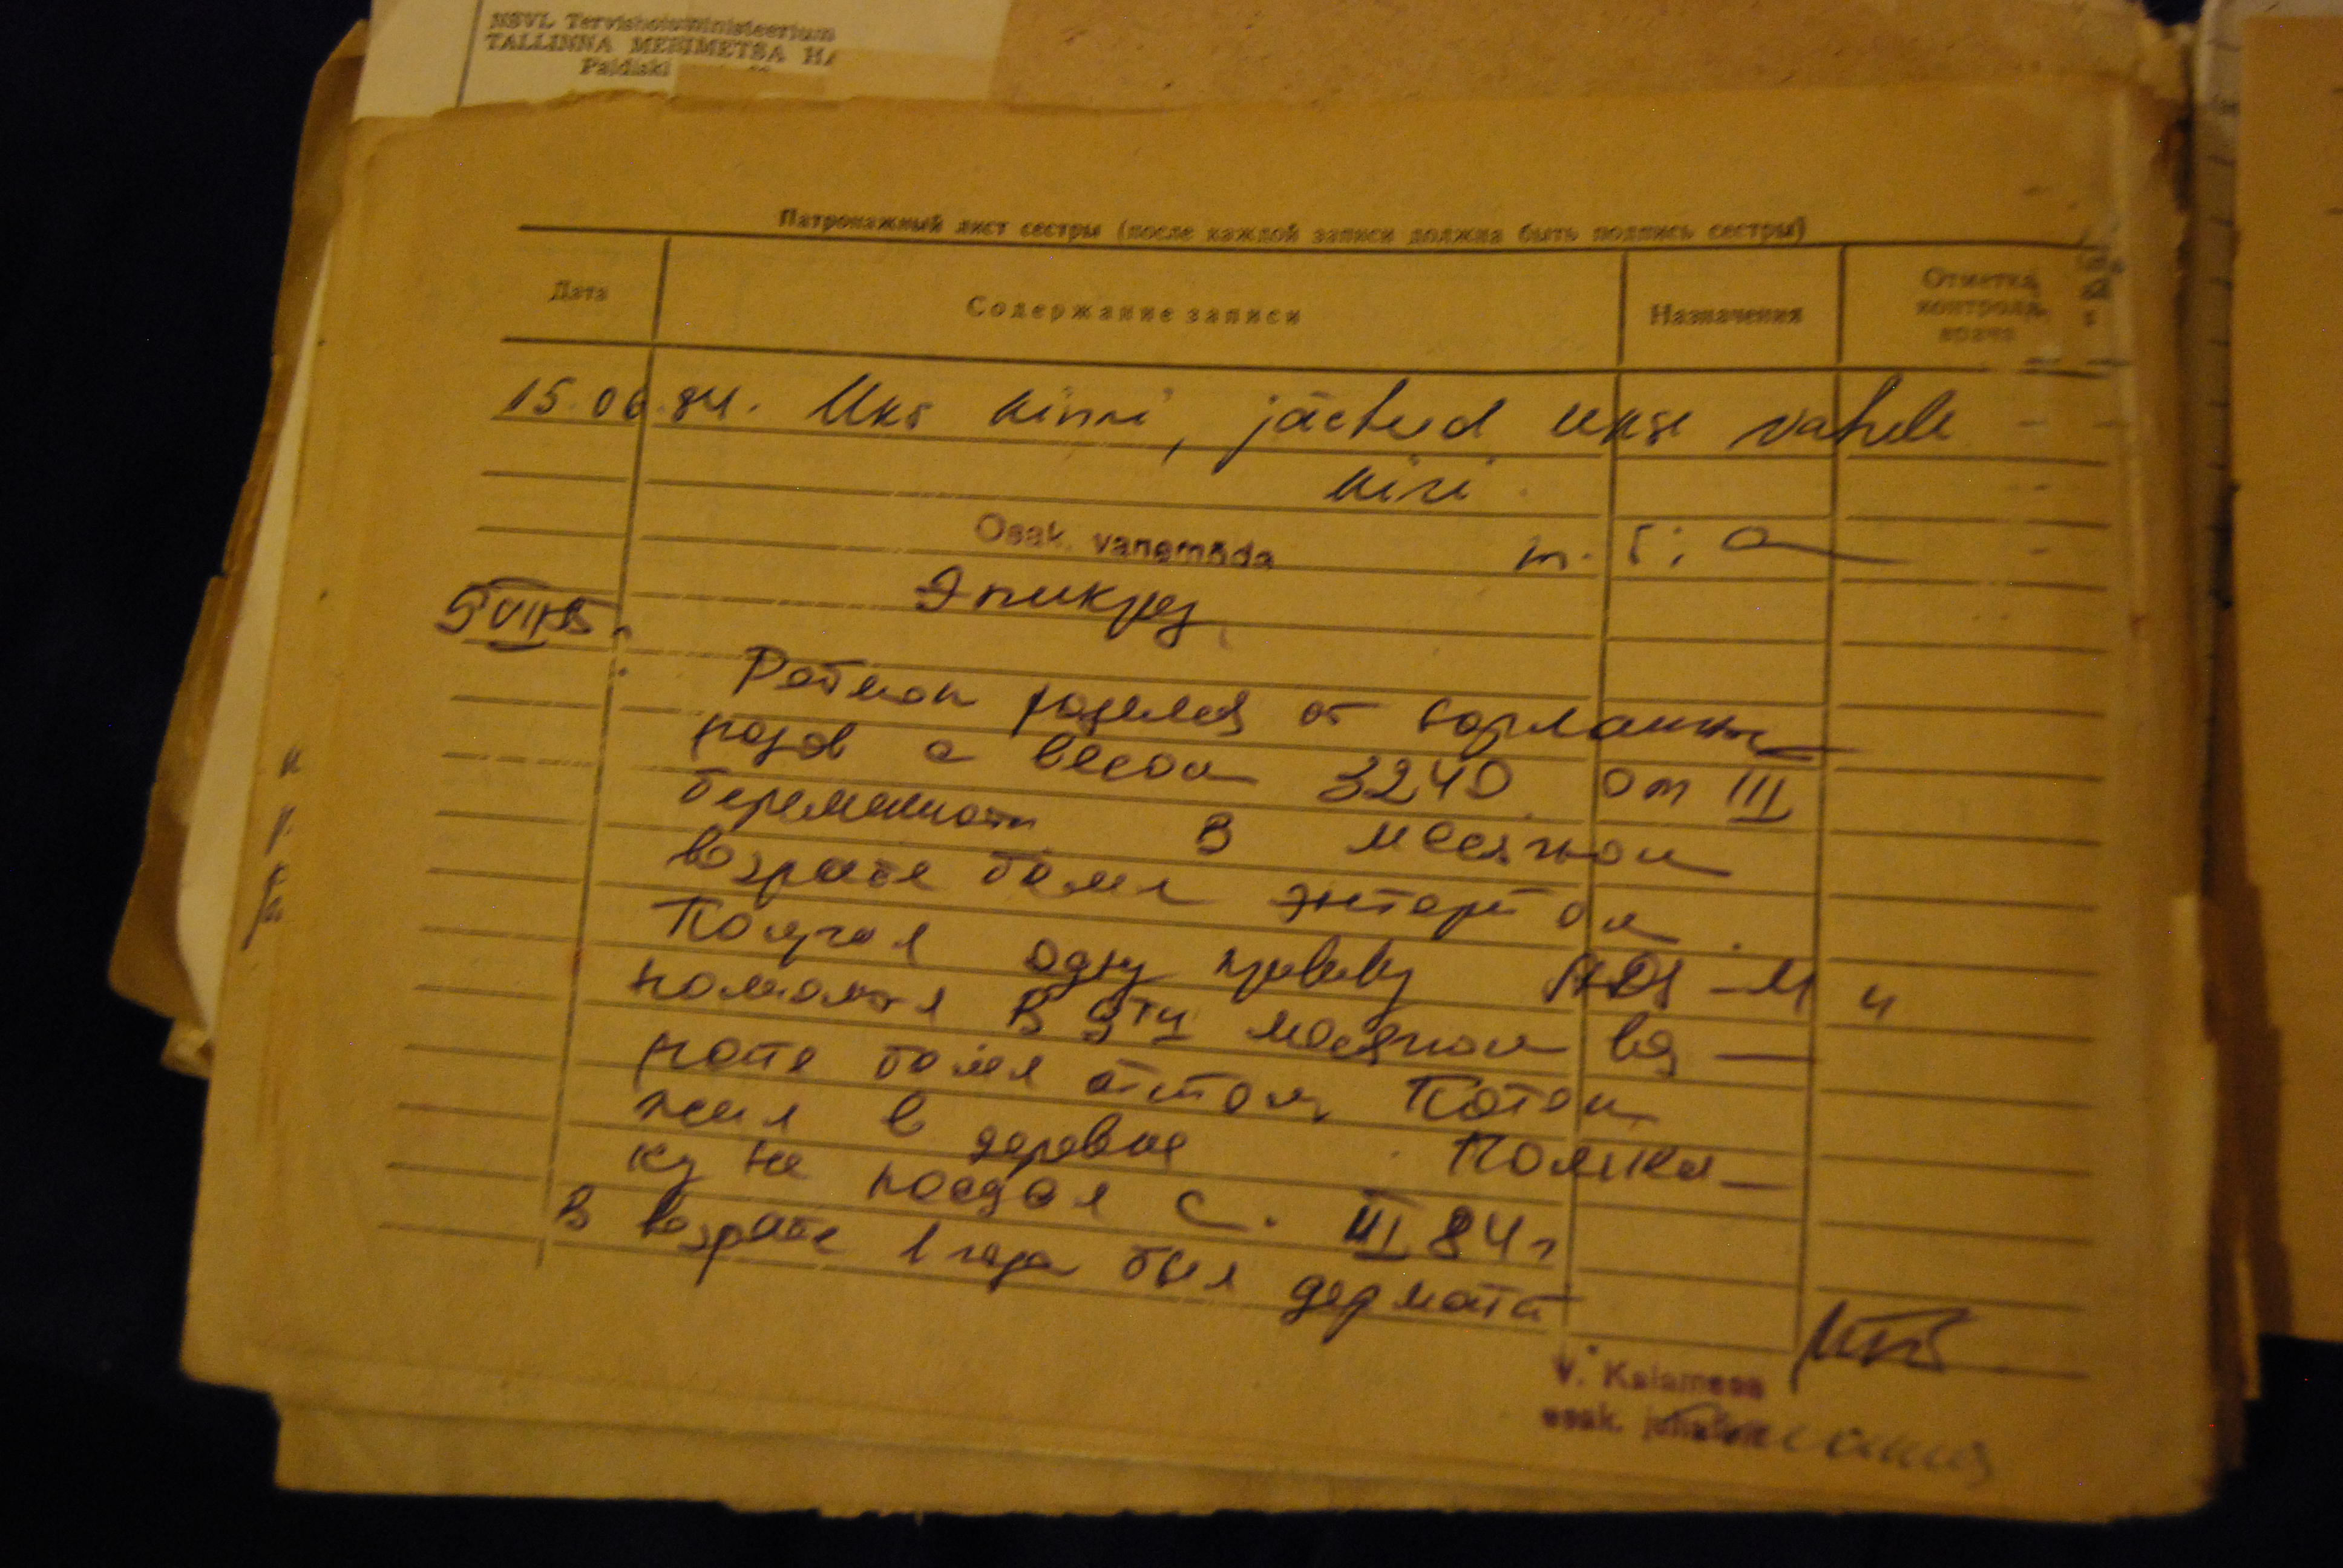 NSVL Tervishoiuministeerium
TALLINNA MERIMETSA HA
Paldiski
Патронажный лист сестры (после каждой записи должна быть подпись сестры)
Дата
Содержание записи
Назначения
Отметка контроля врача
15.06.84. Uks kinni, jäetud ukse vahele
kiri.
Osak. vanemõde
Эпикриз
Ребенок родился от нормальных
родов с весом 3240 от III
беременности В месячном
возрасте болел энтеритом.
Получил одну прививку ADS-M и
В 9ти месячном воз—
расте болел Потом
жил в деревне. Поликли—
ку не посещал с. III 84 г
В возрасте 1 года был дермати
V. Kalamess
osak. juhataja